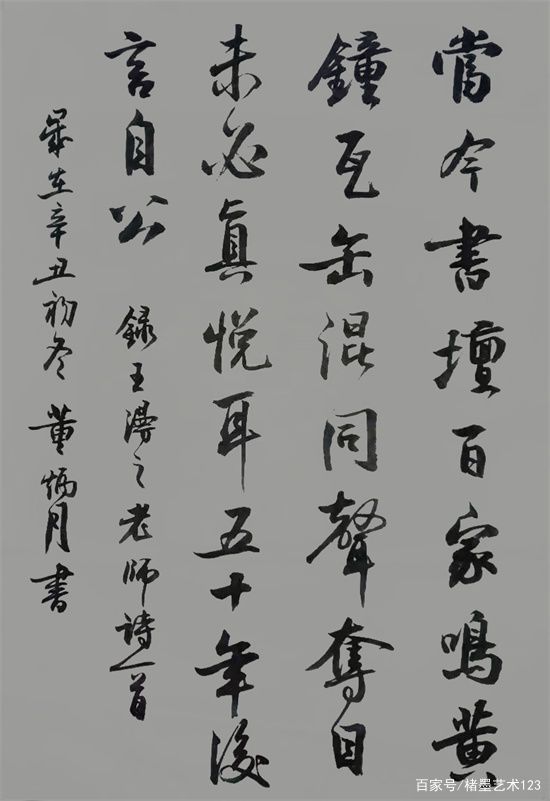 當今書壇百家鳴黄
鐘瓦缶混同聲奪目
未必真悦耳五十年後
言自公
録王漫之老師詩一首
歲在辛丑初冬董炳月書
百家号/楮墨艺术123